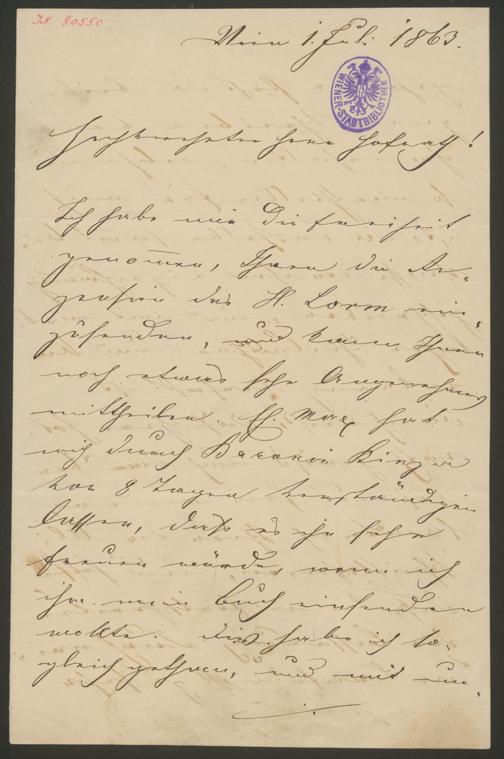 IN 80550
Wien 1. Juli 1863.
WIENER-STADTBIBLIOTHEK
Hochverehrter Herr Hofrath!
Ich habe mir die Freiheit
genommen, Ihnen die Re-
zension des H. Lorm ein-
zusenden, und kann Ihnen
noch etwas sehr Angenehmes
mittheilen. Eh Max hat
mich durch Baronin Binzer
vor 8 Tagen verständigen
lassen, daß es ihn sehr
freuen würde, wenn ich
ihm mein Buch einsenden
wollte. Dies habe ich so-
gleich gethan, und mit um-